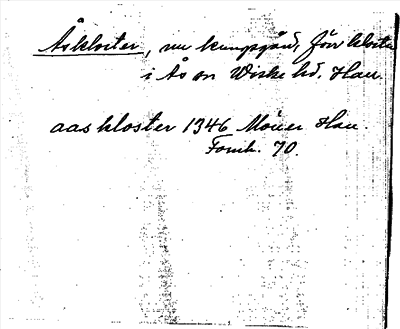 Åskloster, nu kungsgård, förr kloster
i Ås sn Viske hd. Hall.
aaskloster 1346 Möller Hall.
Fornh. 70.